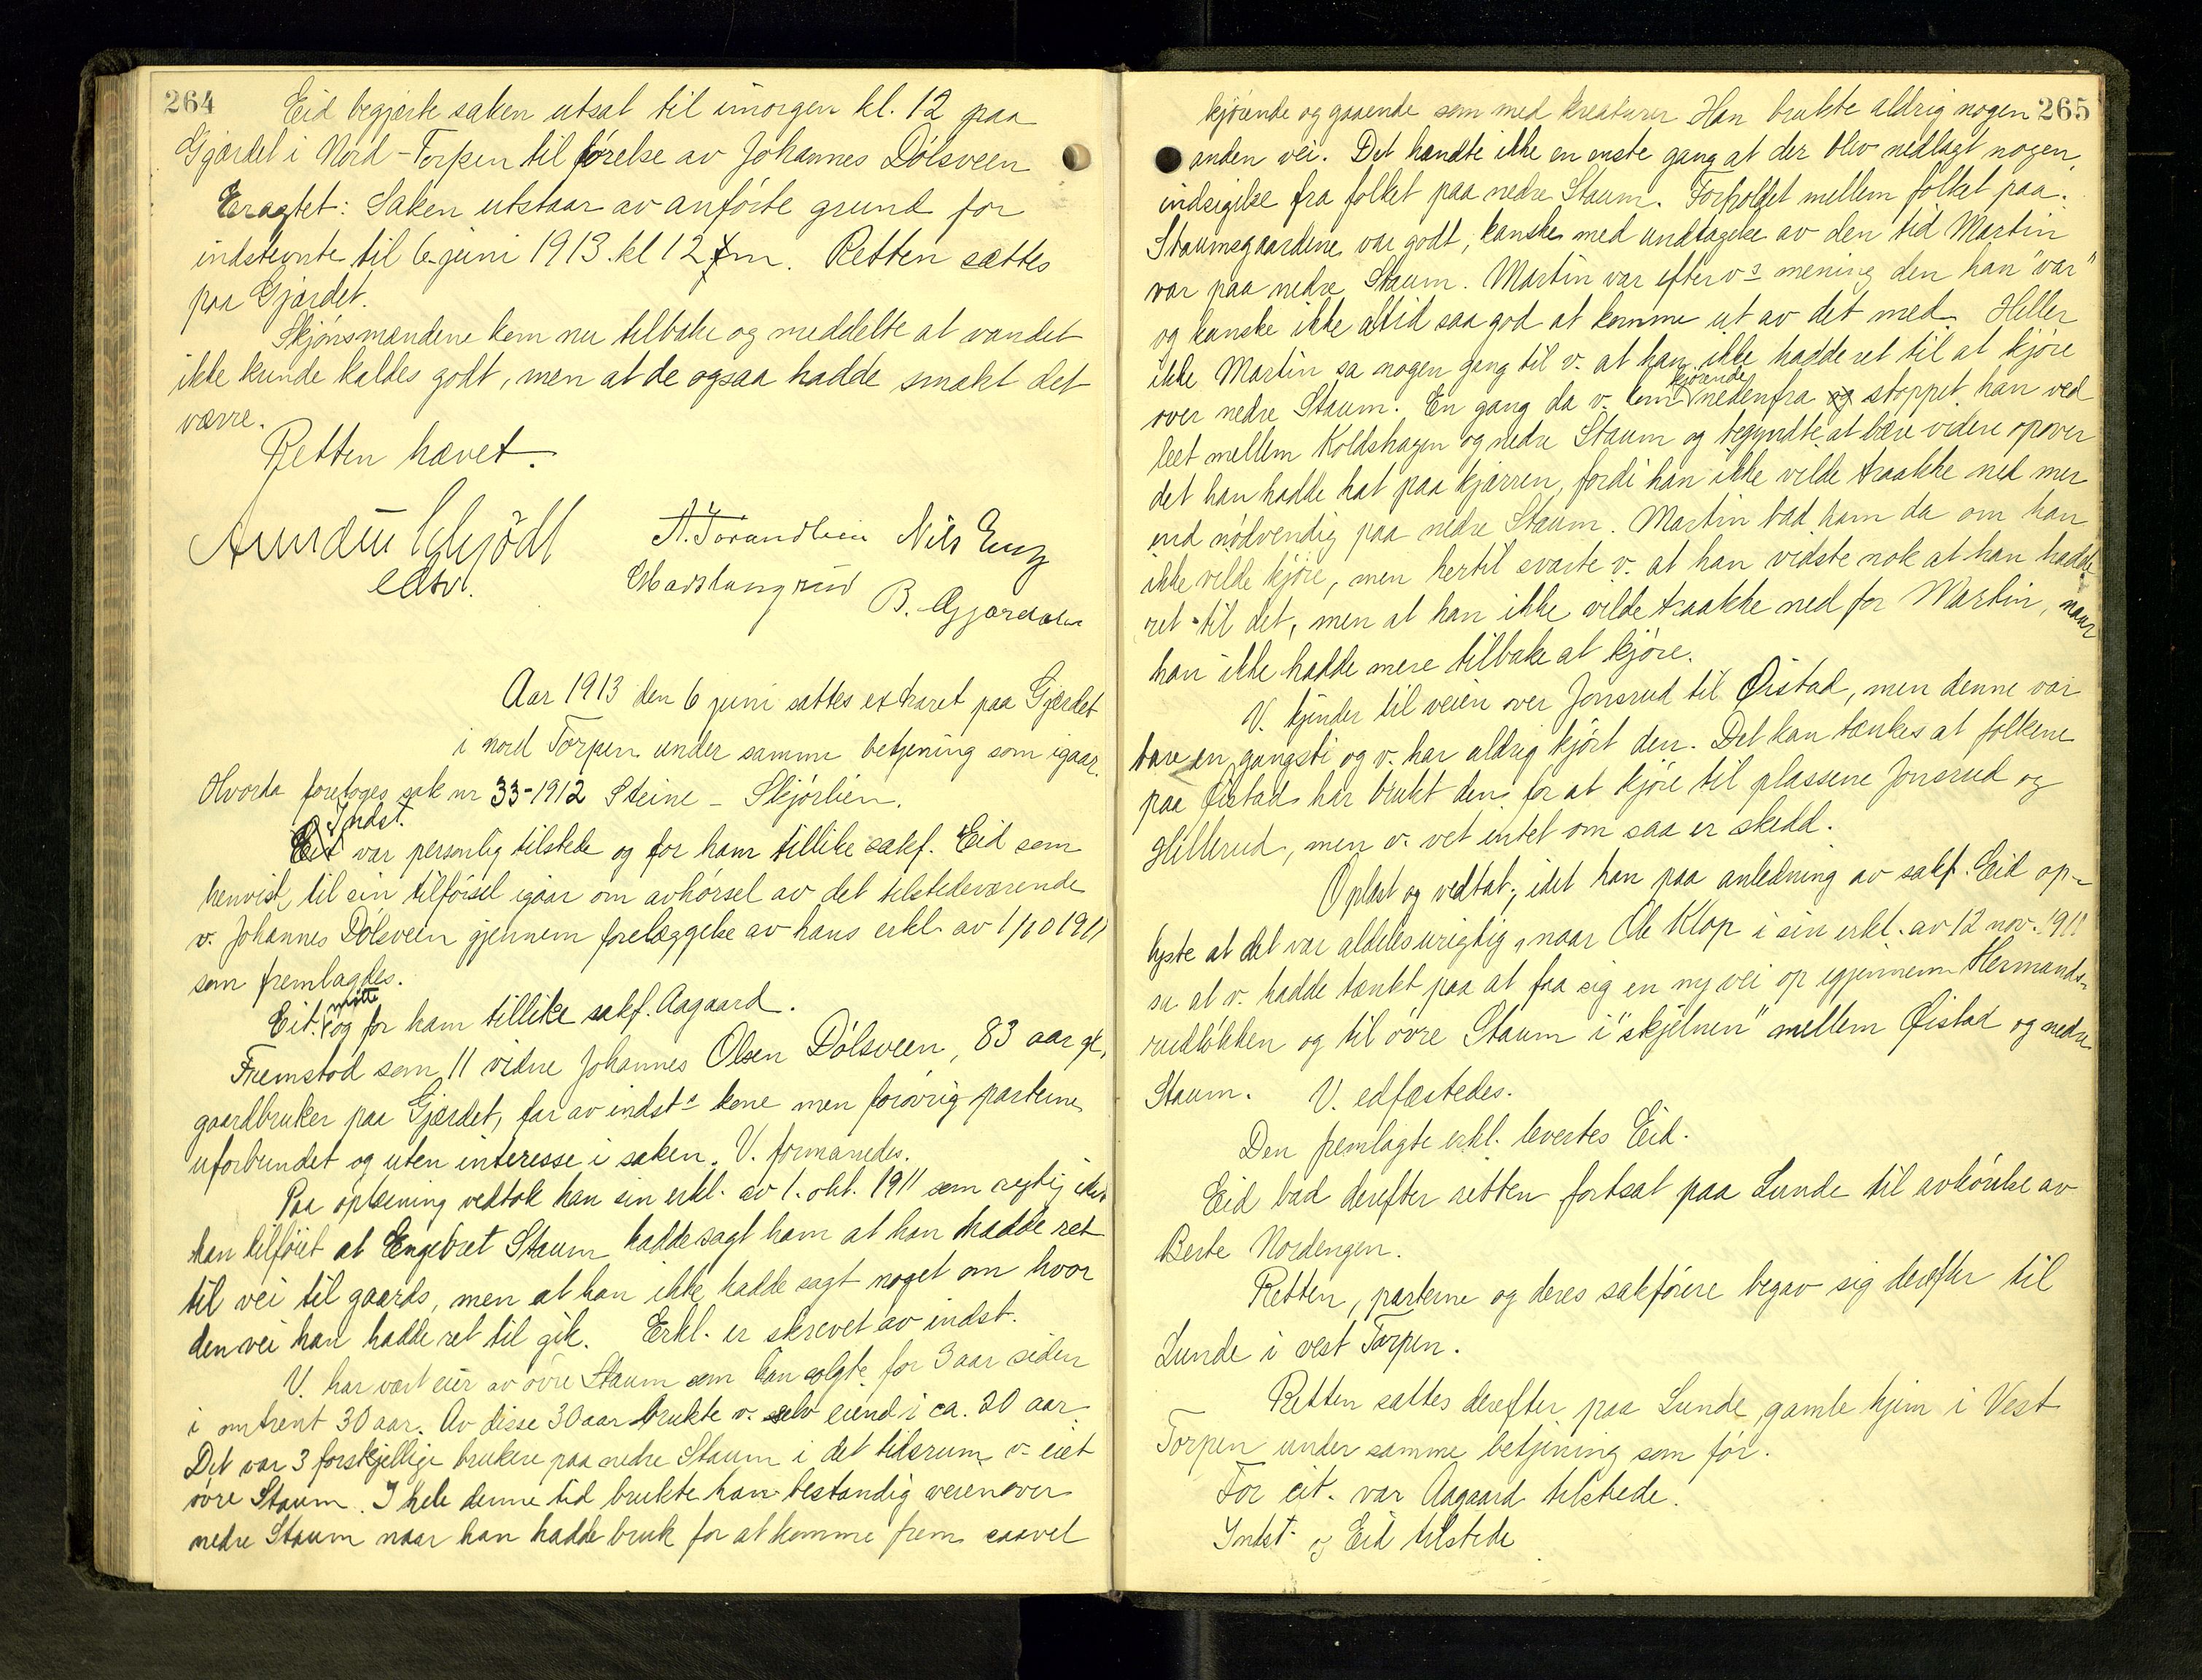 264
Eid begjærte saken utsat til imorgen kl. 12 paa
Gjærdet i Nord-Torpen til förelse av Johannes Dölsveen
Eragtet: Saken utstaar av anförte grund for
indstevnte til 6 juni 1913. kl 12 fm. Retten sættes
paa Gjærdet.
Skjönsmændene kom nu tilbake og meddelte at vandet
ikke kunde kaldes godt, men at de ogsaa hadde smakt det
værre.
Retten hævet.
Amandus Schjödt
edsv.
A. Torandlien Nils Eng
B. Gjærdalen
Aar 1913 den 6 juni sattes extraret paa Gjærdet
i nord Torpen under samme betjening som igaar.
Hvorda foretoges sak nr 33-1912 Steine - Skjörlien.
Indst.
var personlig tilstede og for ham tillike sakf. Eid som
henviste til sin tilförsel igaar om avhörsel av det tilstedeværende
v. Johannes Dölsveen gjennem forelæggelse av hans erkl. av 1/10 1911
som fremlagdes.
Cit. mötte og for ham tillike sakf. Aagaard.
Fremstod som 11 vidne Johannes Olsen Dölsveen, 83 aar gl,
gaardbruker paa Gjærdet, far av indsts kone men forövrig parterne
uforbundet og uten interesse i saken. V. formanedes.
Paa oplæsning vedtok han sin erkl. av 1. okt. 1911 som rigtig idet
han tilföiet at Engebret Staum hadde sagt ham at han hadde ret
til vei til gaards, men at han ikke hadde sagt noget om hvor
den vei han hadde ret til gik. Erkl. er skrevet av indst.
V. har vært eier av övre Staum som han solgte for 3 aar siden
i omtrent 30 aar. Av disse 30 aar brukte v. selv eiend i ca. 20 aar.
Det var 3 forskjellige brukere paa nedre Staum i det tidsrum v. eiet
övre Staum. I hele denne tid brukte han bestandig veien over
nedre Staum naar han hadde bruk for at komme frem saavel
265
kjörende og gaaende som med kreaturer Han brukte aldrig nogen
anden vei. Det hændte ikke en eneste gang at der blev nedlagt nogen
indsigelse fra folket paa nedre Staum. Forholdet mellem folket paa
Staumsgaardene var godt, kanske med undtagelse av den tid Martin
var paa nedre Staum. Martin var efter vs mening den han "var"
og kanske ikke altid saa god at komme ut av det med. Heller
ikke Martin sa nogen gang til v. at han ikke hadde ret til at kjöre
over nedre Staum. En gang da v. kom kjörende nedenfra stoppet han ved
leet mellem Koldshagen og nedre Staum og begyndte at bære videre opover
det han hadde hat paa kjærren, fordi han ikke vilde traakke ned mer
end nödvendig paa nedre Staum. Martin bad ham da om han
ikke vilde kjöre, men hertil svarte v. at han vidste nok at han hadde
ret til det, men at han ikke vilde traakke ned for Martin, naar
han ikke hadde mere tilbake at kjöre.
V. kjender til veien over Jonsrud til Öistad, men denne var
bare en gangsti og v. har aldrig kjört den. Det kan tænkes at folkene
paa Öistad har brukt den for at kjöre til plassene Jonsrud og
Hillerud, men v. vet intet om saa er skedd.
Oplæst og vedtat, idet han paa anledning av sakf. Eid op-
lyste at det var aldeles urigtig, naar Ole Klop i sin erkl. av 12 nov. 1911
sa at v. hadde tænkt paa at faa sig en ny vei op igjennem Hermands-
rudlökken og til övre Staum i "skjelnen" mellem Öistad og nedre
Staum. V. edfæstedes.
Den fremlagte erkl. levertes Eid.
Eid bad derefter retten fortsat paa Lunde til avhörelse av
Berte Nordengen.
Retten, parterne og deres sakförere begav sig derefter til
Lunde i vest Torpen.
Retten sattes derefter paa Lunde gamle hjem i Vest
Torpen under samme betjening som för.
For cit. var Aagaard tilstede.
Indst. og Eid tilstede